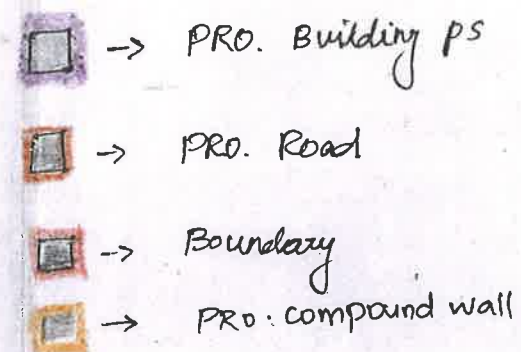 → PRO. Building ps
→ PRO. Road
→ Boundary
→ PRO. compound wall